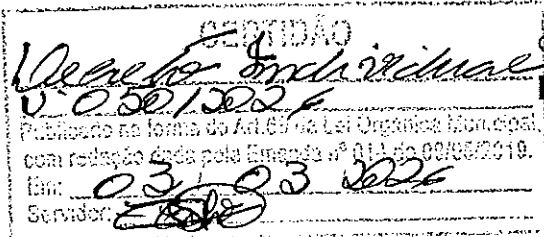 CERTIDÃO
Decreto Individual
Nº 050/2026
Publicado na forma do Art.69 da Lei Orgânica Municipal,
com redação dada pela Emenda nº 014 de 08/05/2019.
Em: 03 / 03 2026
Servidor: